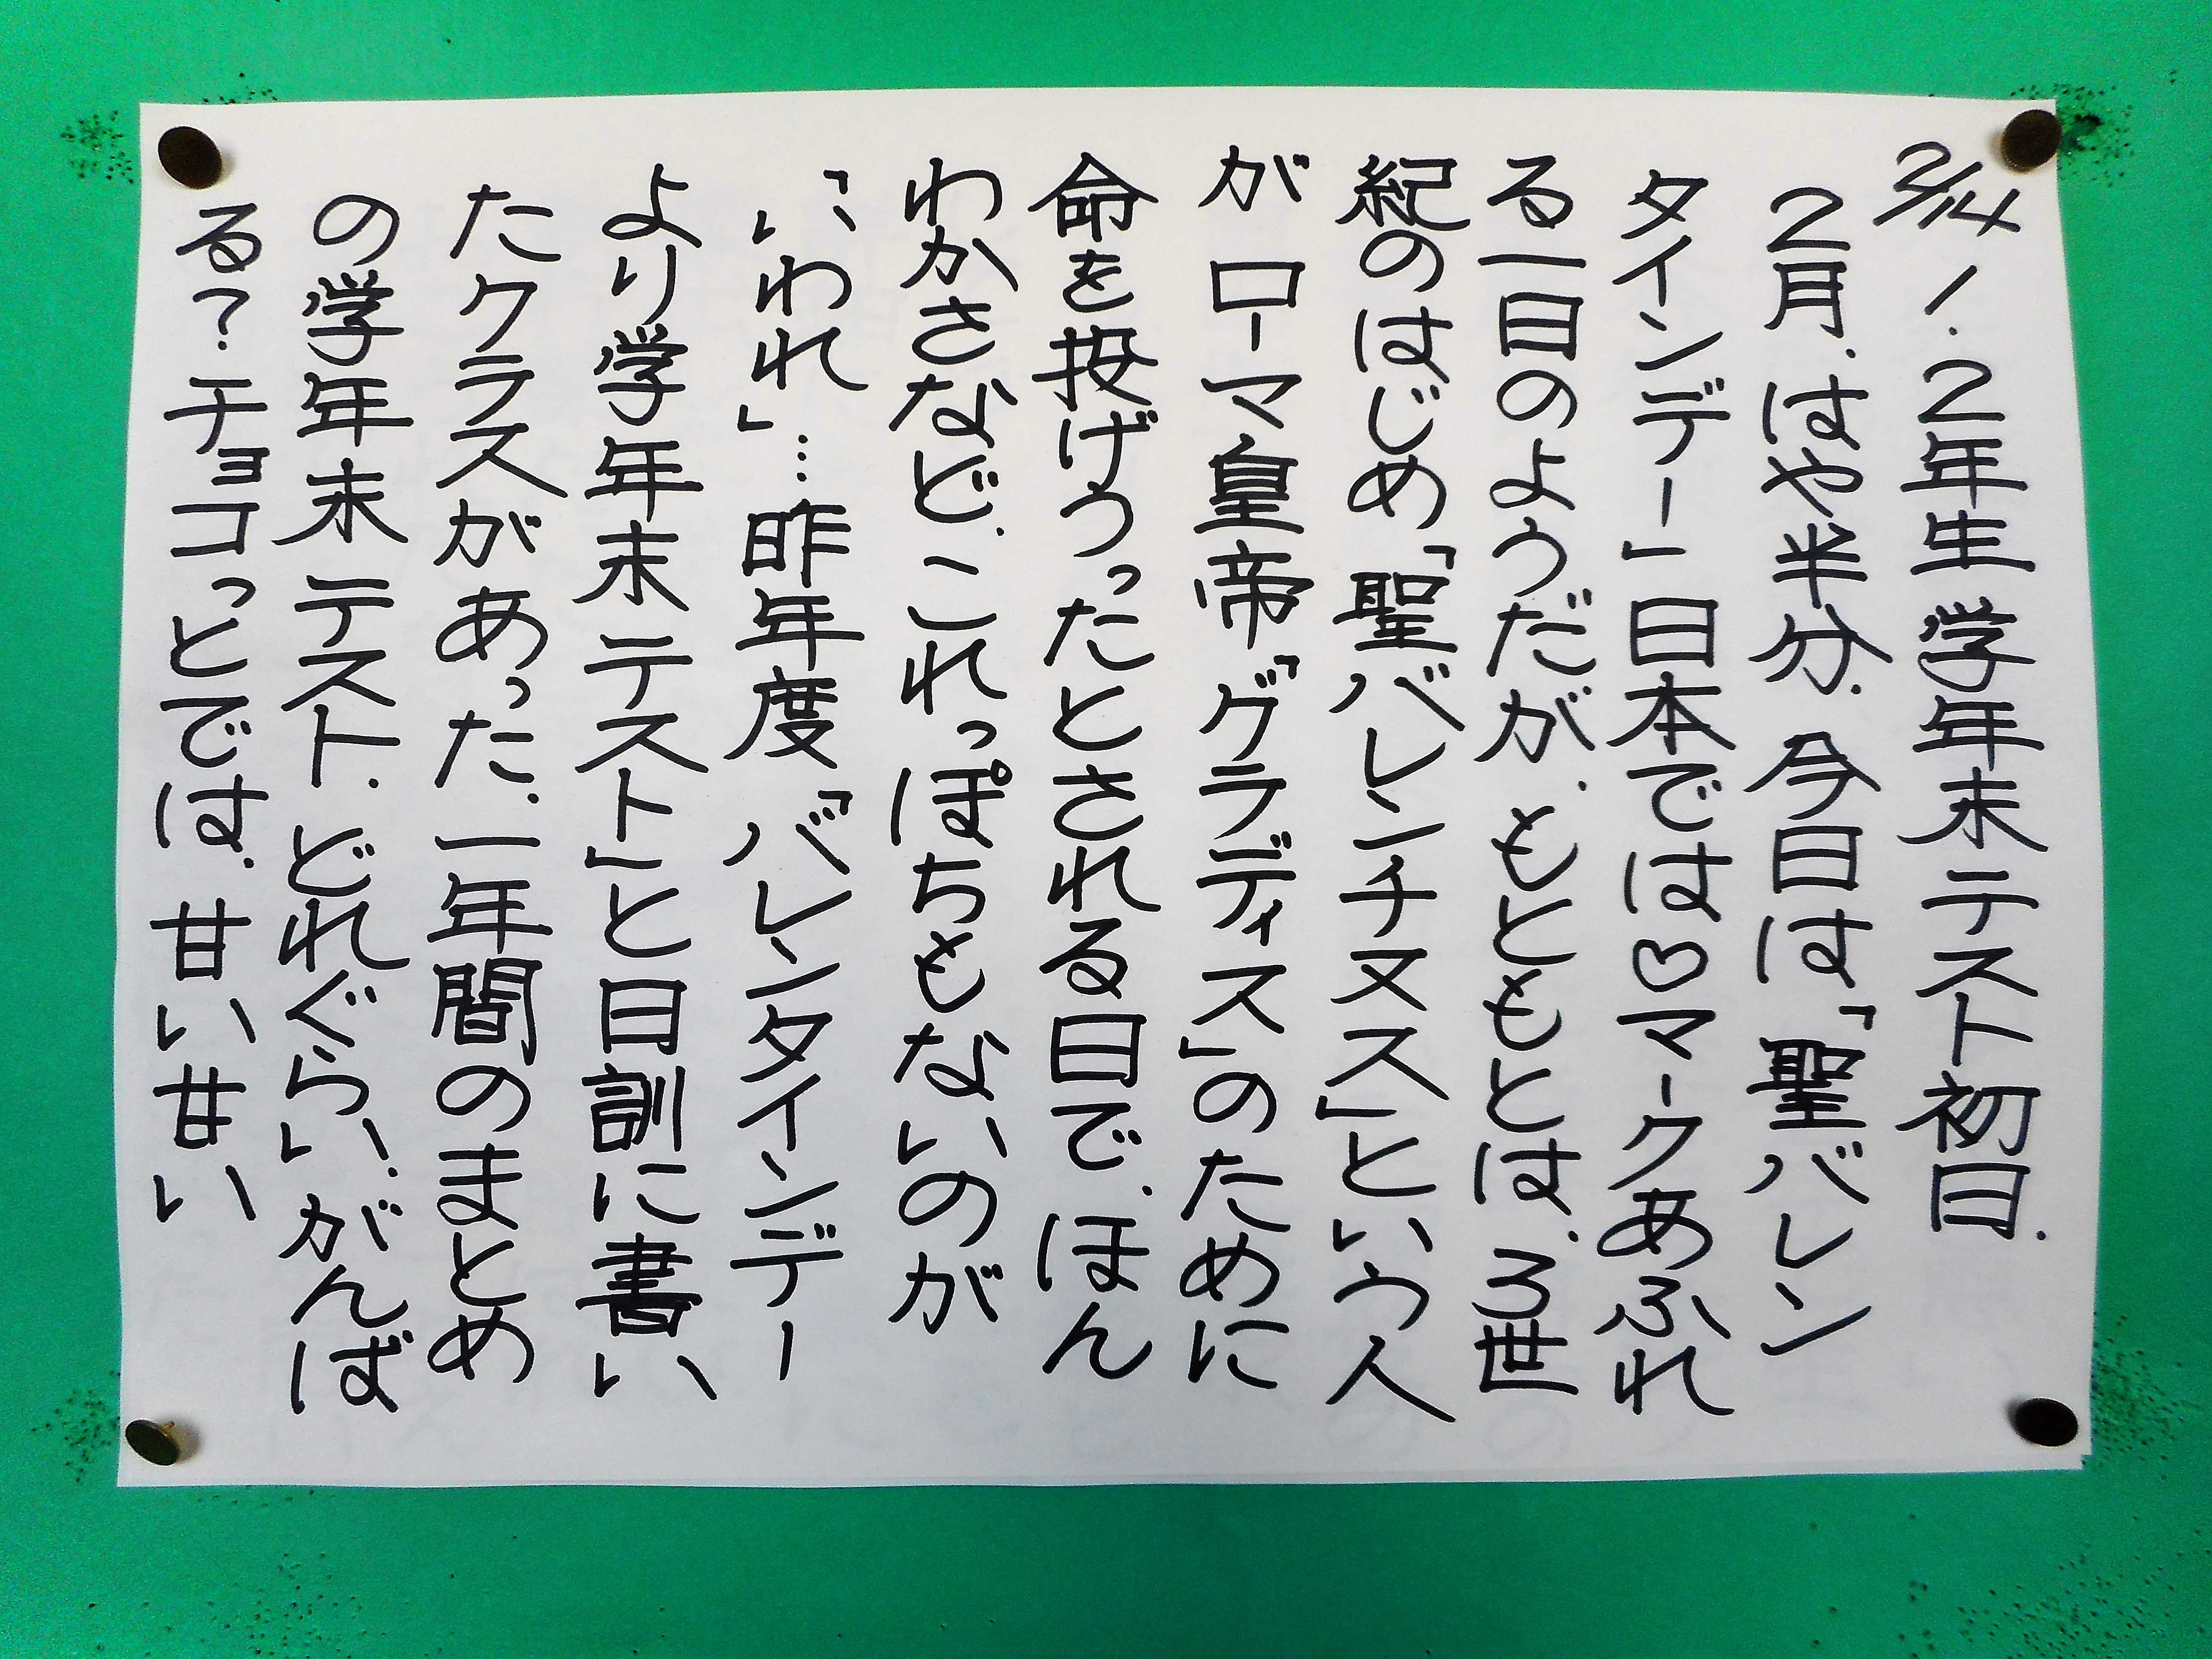 2/14 1.2年生 学年末テスト初日.
2月.はや半分.今日は「聖バレン
タインデー」日本では♡マークあふれ
る一日のようだが.もともとは.3世
紀のはじめ「聖バレンチヌス」という人
が ローマ皇帝「グラディス」のために
命を投げうったとされる日で.ほん
わかさなど.これっぽちもないのが
「いわれ」…昨年度「バレンタインデー
より学年末テスト」と日訓に書い
たクラスがあった.一年間のまとめ
の学年末テスト.どれぐらい!がんば
る?チョコっとでは.甘い甘い